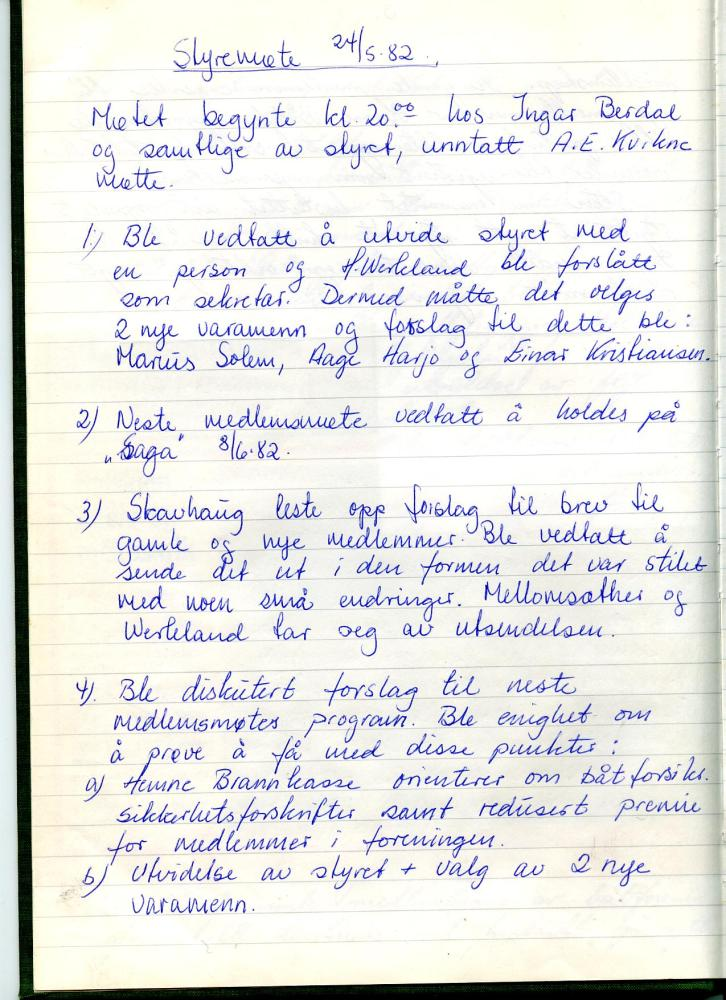 Styremøte 24/5-82.
Møtet begynte kl. 20.00 hos Ingar Berdal
og samtlige av styret, unntatt A.E. Kvikne
møtte.
1.) Ble vedtatt å utvide styret med
en person og H. Werkland ble forslått
som sekretær. Dermed måtte det velges
2 nye varamenn og forslag til dette ble:
Marius Solem, Aage Harjo og Einar Kristiansen.
2) Neste medlemsmøte vedtatt å holdes på
"Saga" 8/6-82.
3) Skavhaug leste opp forslag til brev til
gamle og nye medlemmer. Ble vedtatt å
sende det ut i den formen det var stilet
med noen små endringer. Mellomsæther og
Werkeland tar seg av utsendelsen.
4). Ble diskutert forslag til neste
medlemsmøtes program. Ble enighet om
å prøve å få med disse punkter:
a) Hemne Brannkasse orienterer om båtforsikr.
sikkerhetsforskrifter samt redusert premie
for medlemmer i foreningen.
b) Utvidelse av styret + valg av 2 nye
varamenn.